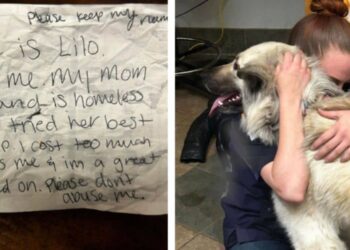 Please keep my name
is Lilo.
me my mom
and is homeless
tried her best
I cost too much
s me & im a great
d on. Please don't
abuse me.